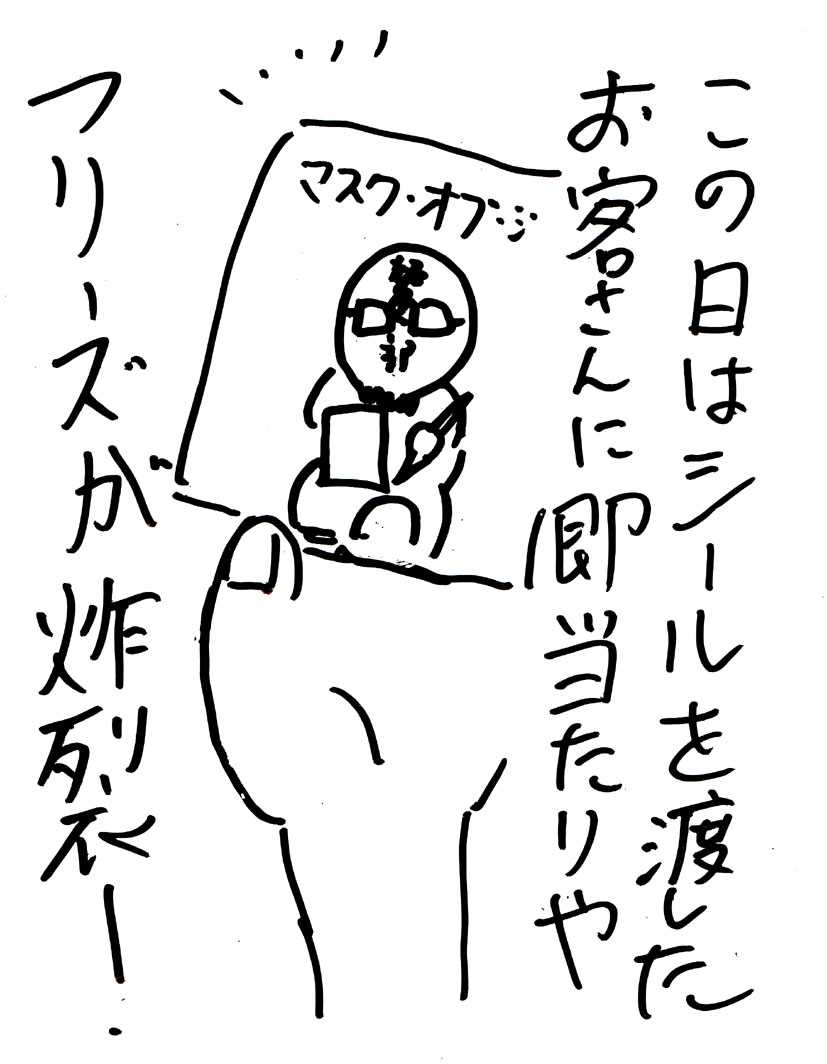 この日はシールを渡した
お客さんに即当たりや
フリーズが炸裂ー！
マスク・オブ・ジ